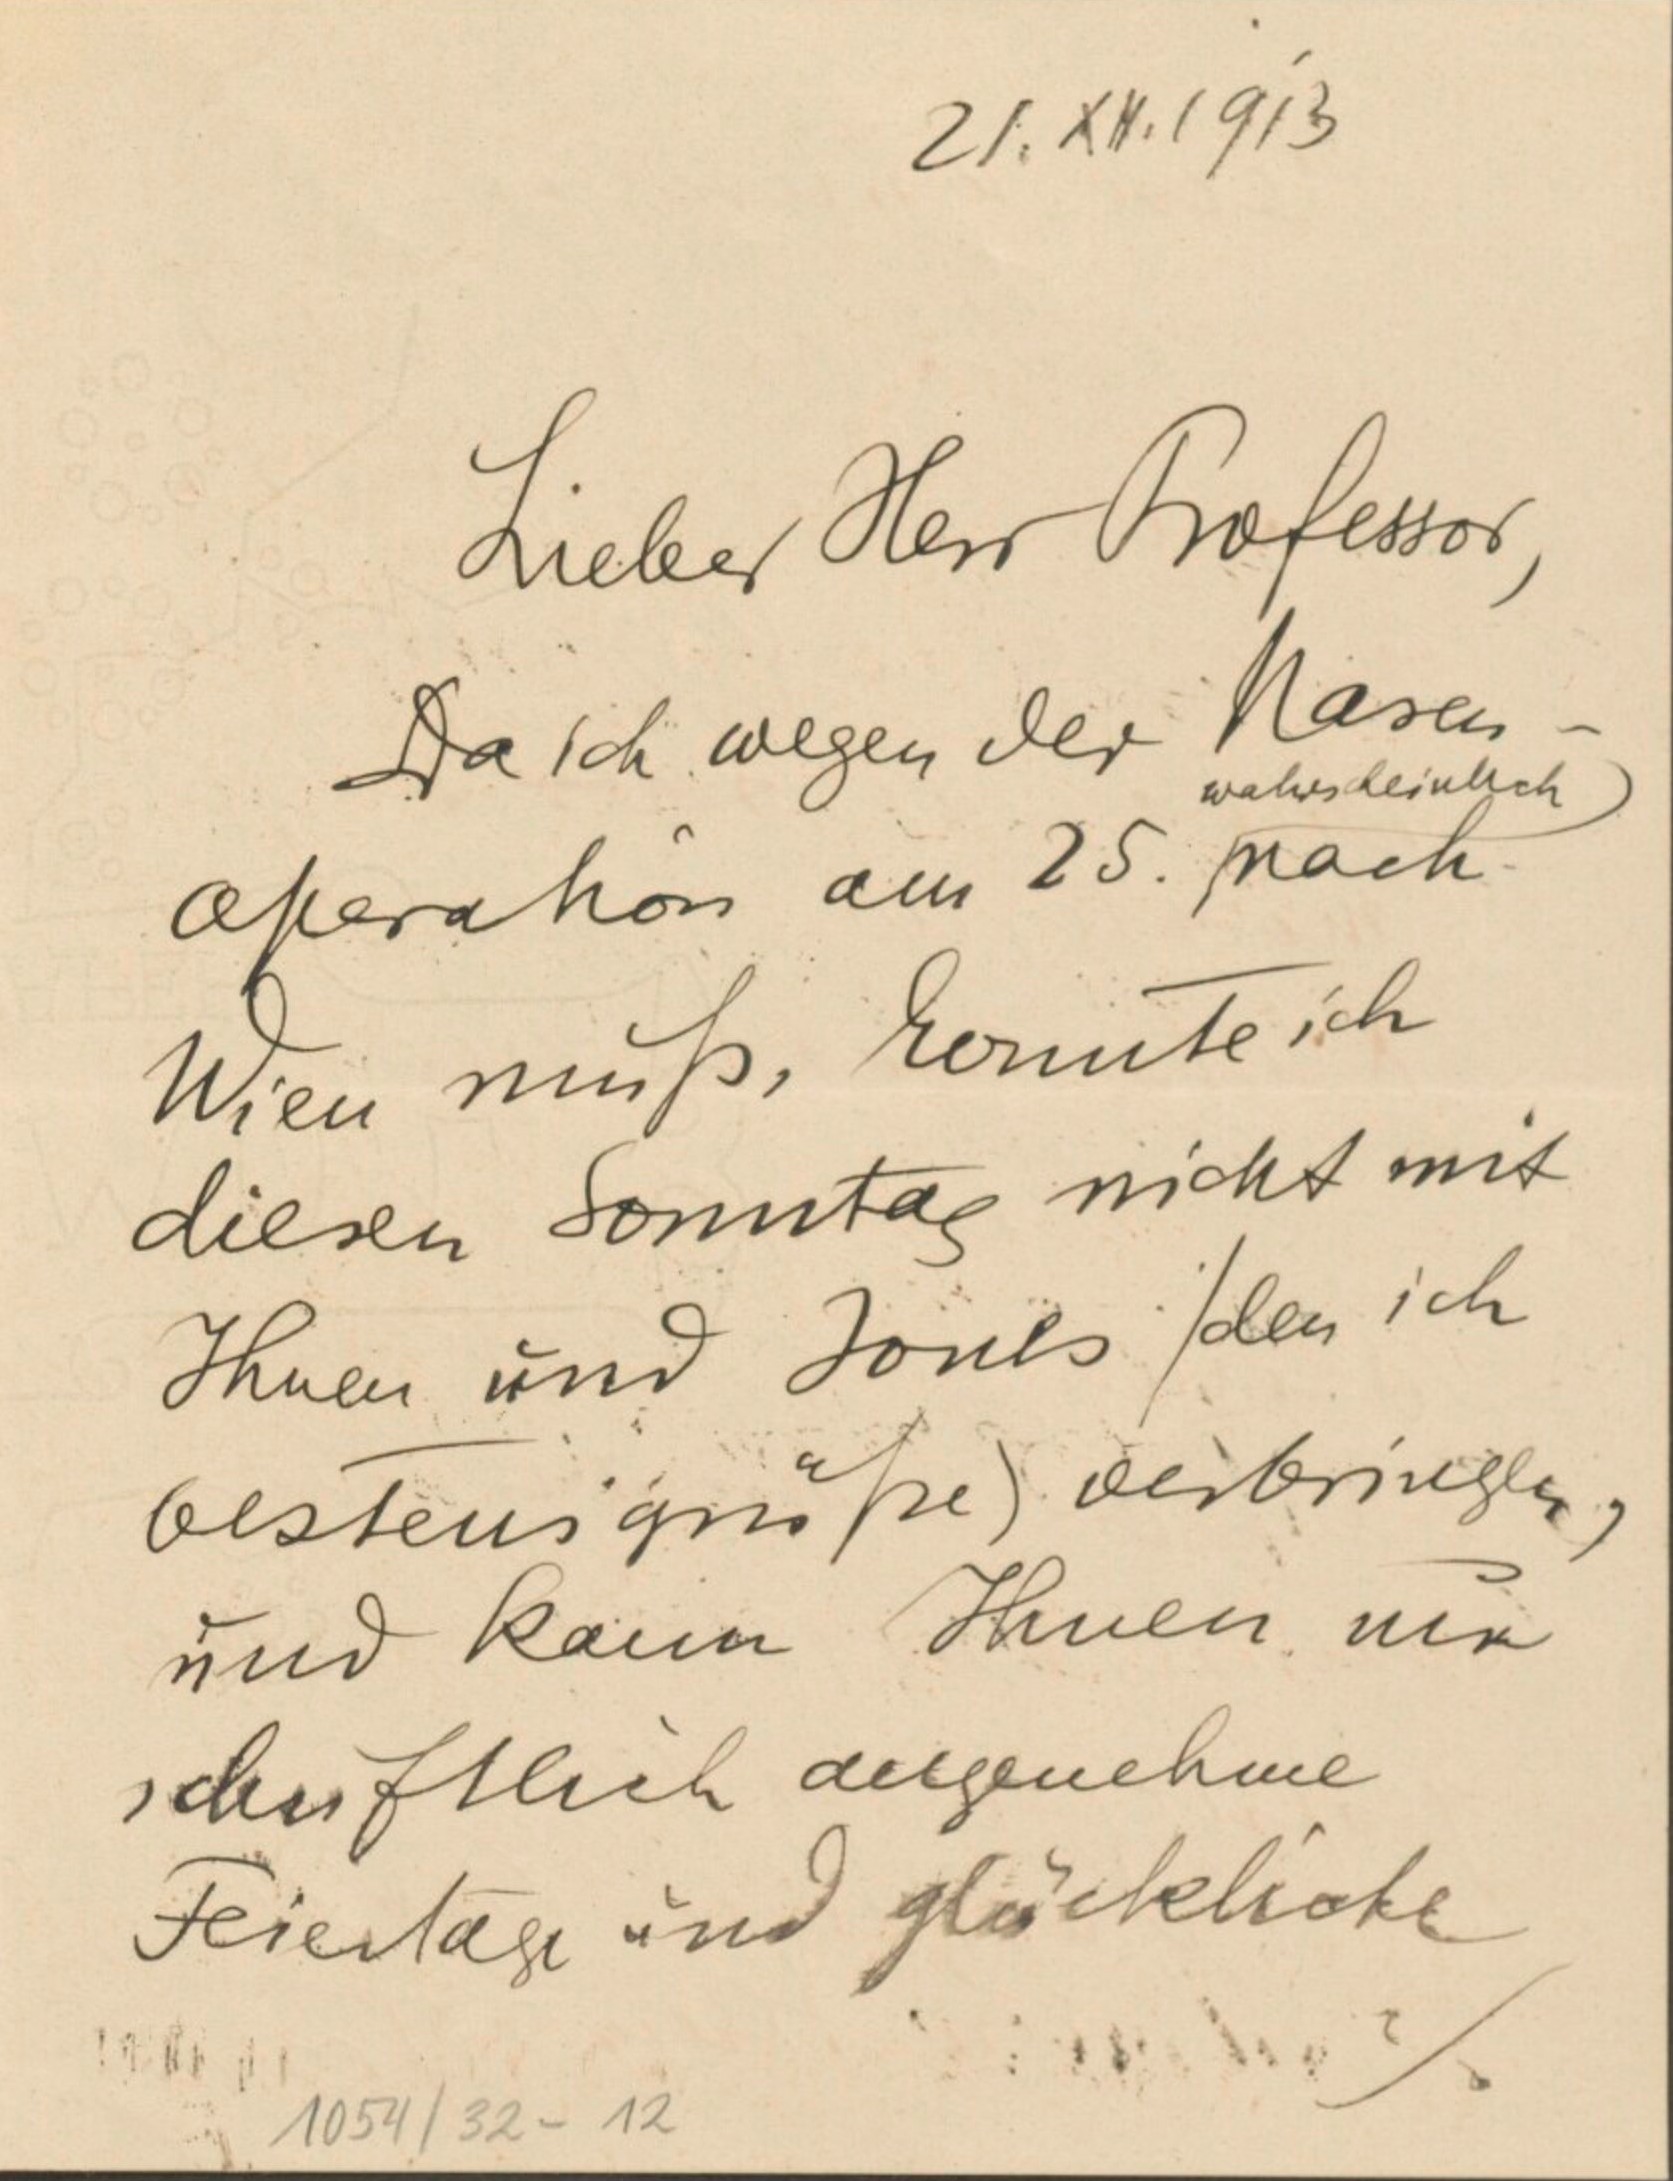 21. XII. 1913
Lieber Herr Professor,
Da ich wegen der Nasen-
wahrscheinlich
operation am 25. nach
Wien muß, konnte ich
diesen Sonntag nicht mit
Ihnen und Jones /den ich
bestens grüße) verbringen,
und kann Ihnen nur
schriftlich angenehme
Feiertage und glückliche
1054/32-12